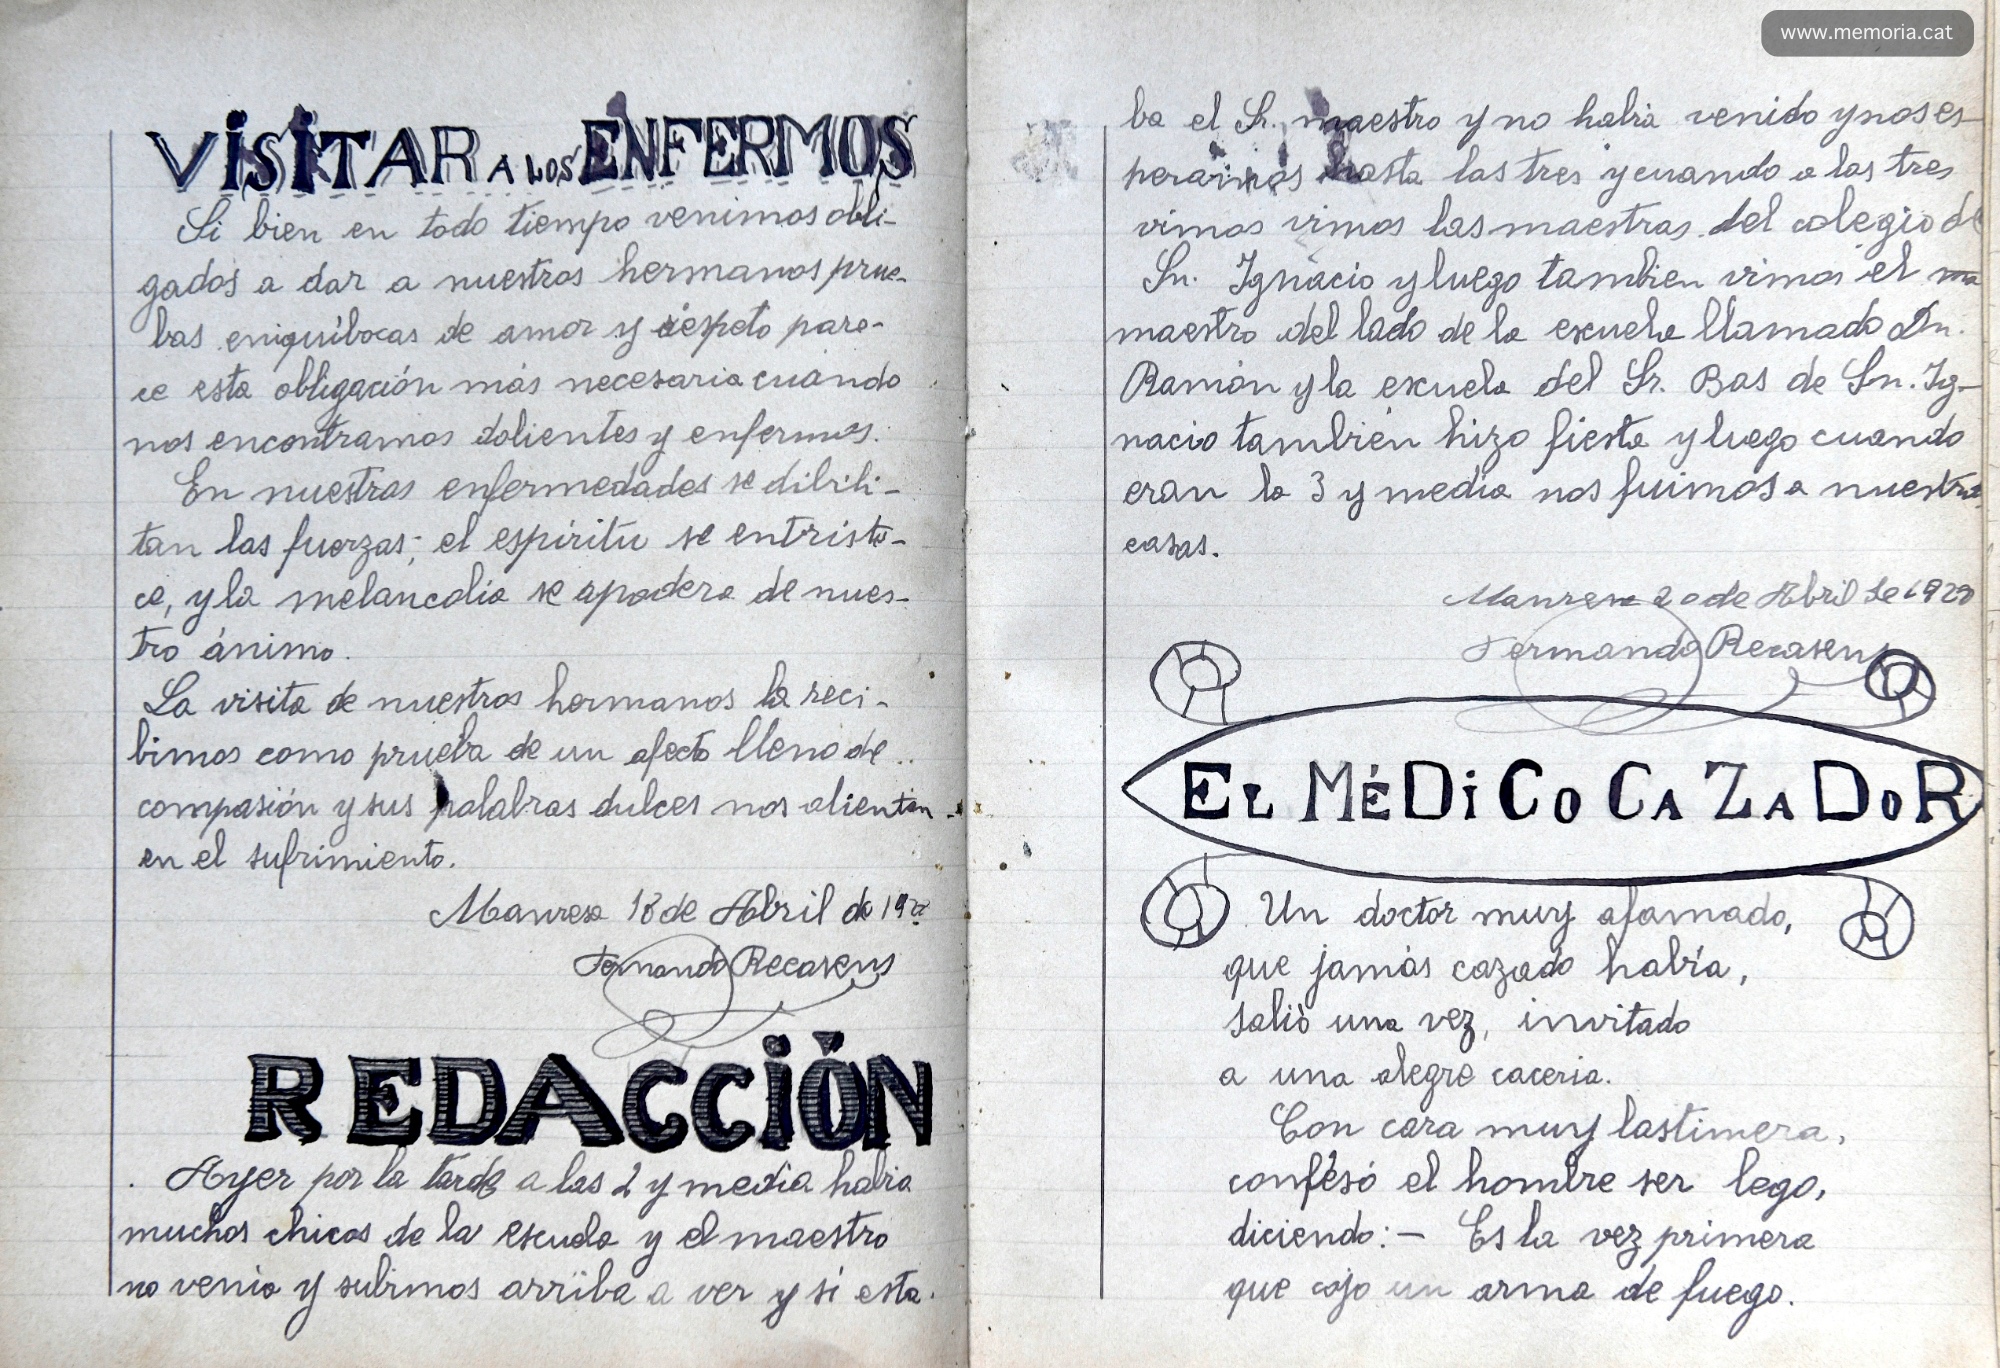 VISITAR A LOS ENFERMOS
Si bien en todo tiempo venimos obli-
gados a dar a nuestros hermanos prue-
bas eniquíbocas de amor y respeto pare-
ce esta obligación más necesaria cuando
nos encontramos dolientes y enfermos.
En nuestras enfermedades se dibili-
tan las fuerzas; el espíritu se entriste-
ce, y la melancolia se apodera de nues-
tro ánimo.
La visita de nuestros hermanos la reci-
bimos como prueba de un afecto lleno de
compasión y sus palabras dulces nos alientan
en el sufrimiento.
Manresa 18 de Abril de
Fernando Recasens
REDACCIÓN
Ayer por la tarde a las 2 y media habia
muchos chicos de la escuela y el maestro
no venia y subimos arriba a ver y si esta-
www.memoria.cat
ba el Sr. maestro y no habia venido y nos es-
peramos hasta las tres y cuando a las tres
vimos vimos las maestras del colegio de
Sn. Ignacio y luego tambien vimos el ma
maestro del lado de la escuela llamado Dn.
Ramón y la escuela del Sr. Bas de Sn. Ig-
nacio tambien hizo fiesta y luego cuando
eran la 3 y media nos fuimos a nuestras
casas.
Manresa 20 de Abril de
Fernando Recasens
EL MÉDICO CAZADOR
Un doctor muy afamado,
que jamás cazado habia,
salió una vez, invitado
a una alegre caceria.
Con cara muy lastimera,
confesó el hombre ser lego,
diciendo: - Es la vez primera
que cojo un arma de fuego.